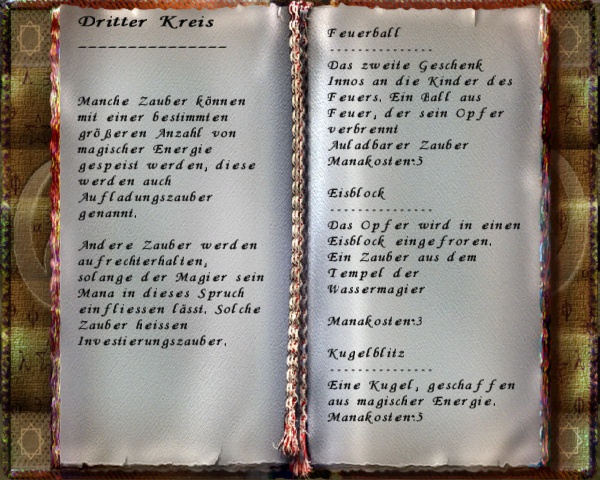 Dritter Kreis
---------------
Manche Zauber können
mit einer bestimmten
größeren Anzahl von
magischer Energie
gespeist werden, diese
werden auch
Aufladungszauber
genannt.
Andere Zauber werden
aufrechterhalten,
solange der Magier sein
Mana in dieses Spruch
einfliessen lässt. Solche
Zauber heissen
Investierungszauber.
Feuerball
---------------
Das zweite Geschenk
Innos an die Kinder des
Feuers. Ein Ball aus
Feuer, der sein Opfer
verbrennt
Auladbarer Zauber
Manakosten:3
Eisblock
---------------
Das Opfer wird in einen
Eisblock eingefroren.
Ein Zauber aus dem
Tempel der
Wassermagier
Manakosten:3
Kugelblitz
---------------
Eine Kugel, geschaffen
aus magischer Energie.
Manakosten:5